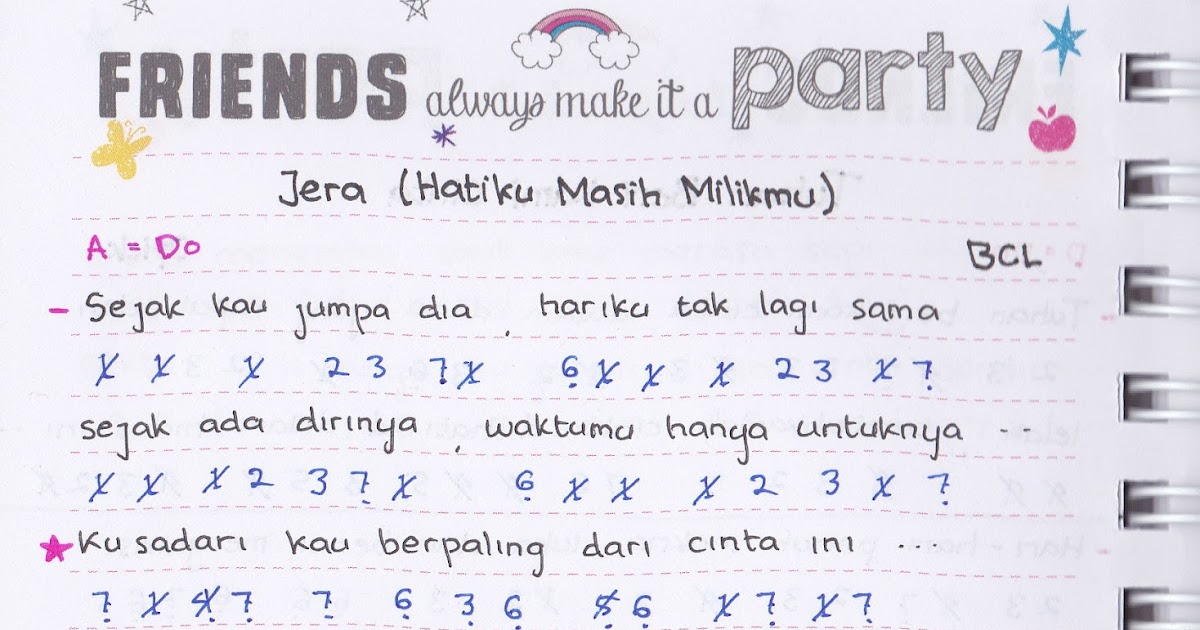 FRIENDS always make it a party
Jera (Hatiku Masih Milikmu)
A = Do
BCL
- Sejak kau jumpa dia, hariku tak lagi sama
1̸ 1̸ 1̸ 2 3 7̣ 1̸ 6̣ 1̸ 1̸ 1̸ 2 3 1̸ 7̣
sejak ada dirinya, waktumu hanya untuknya ...
1̸ 1̸ 1̸ 2 3 7̣ 1̸ 6̣ 1̸ 1̸ 1̸ 2 3 1̸ 7̣
★ Ku sadari kau berpaling dari cinta ini ....
7̣ 1̸ 4̸ 7̣ 7̣ 6̣ 3̣ 6̣ 5̸̣ 6̣ 1̸ 7̣ 1̸ 7̣